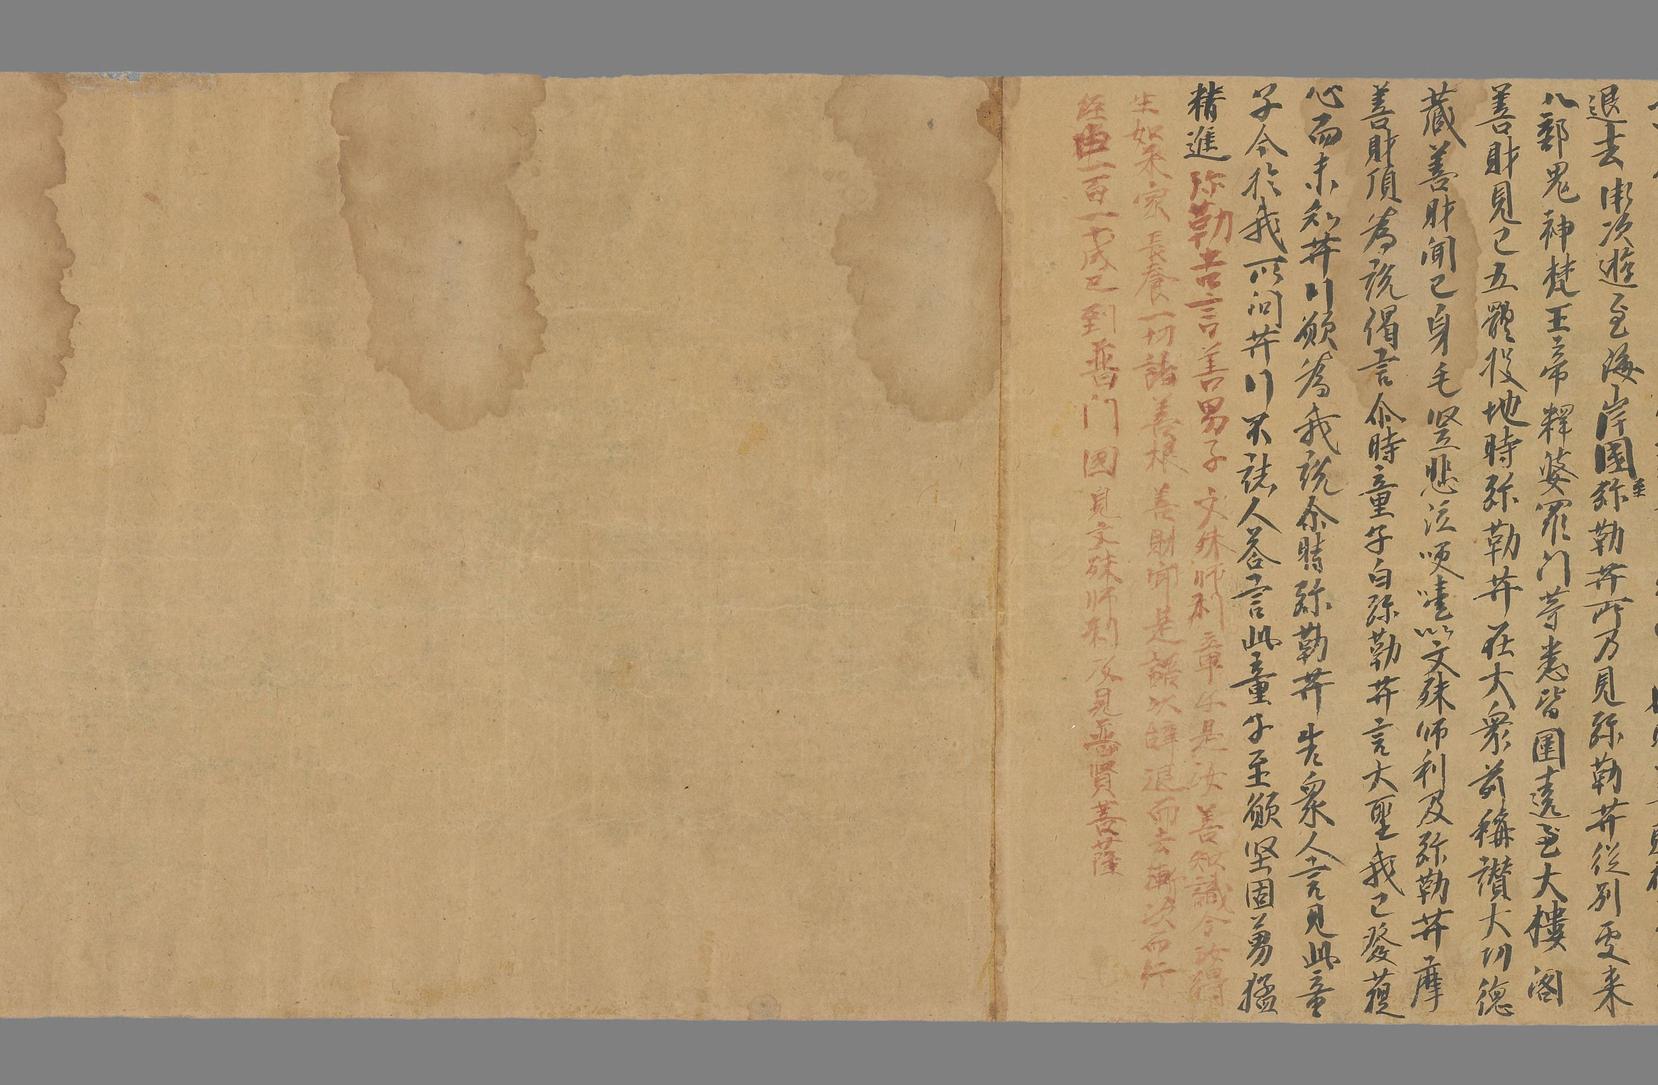 退去漸次遊至海岸國至弥勒菩所乃見弥勒菩從別處来
八部鬼神梵王帝釋婆羅门䓁悉皆圍遶至大樓閣
善財見已五體投地時弥勒菩在大衆前稱讃大功德
藏善財聞已身毛竖悲泣哽噎以文殊师利及弥勒菩摩
善財頂為说偈言尒時童子白弥勒菩言大聖我已發菩提
心而未知菩行願為我说尒時弥勒菩告衆人言見此童
子今於我所问菩行不諸人荅言此童子至願坚固勇猛
精進弥勒告言善男子文殊师利童子是汝善知識令汝得
生如来家長養一切諸善根善財聞是語次辞退而去漸次而行
經由一百一十城已到普门国見文殊师利及見普賢菩薩